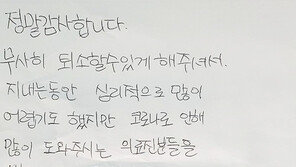 정말감사합니다.
무사히 퇴소할수있게 해주셔서.
지내는동안 심리적으로 많이
어렵기도 했지만 코로나로 인해
많이 도와주시는 의료진분들을